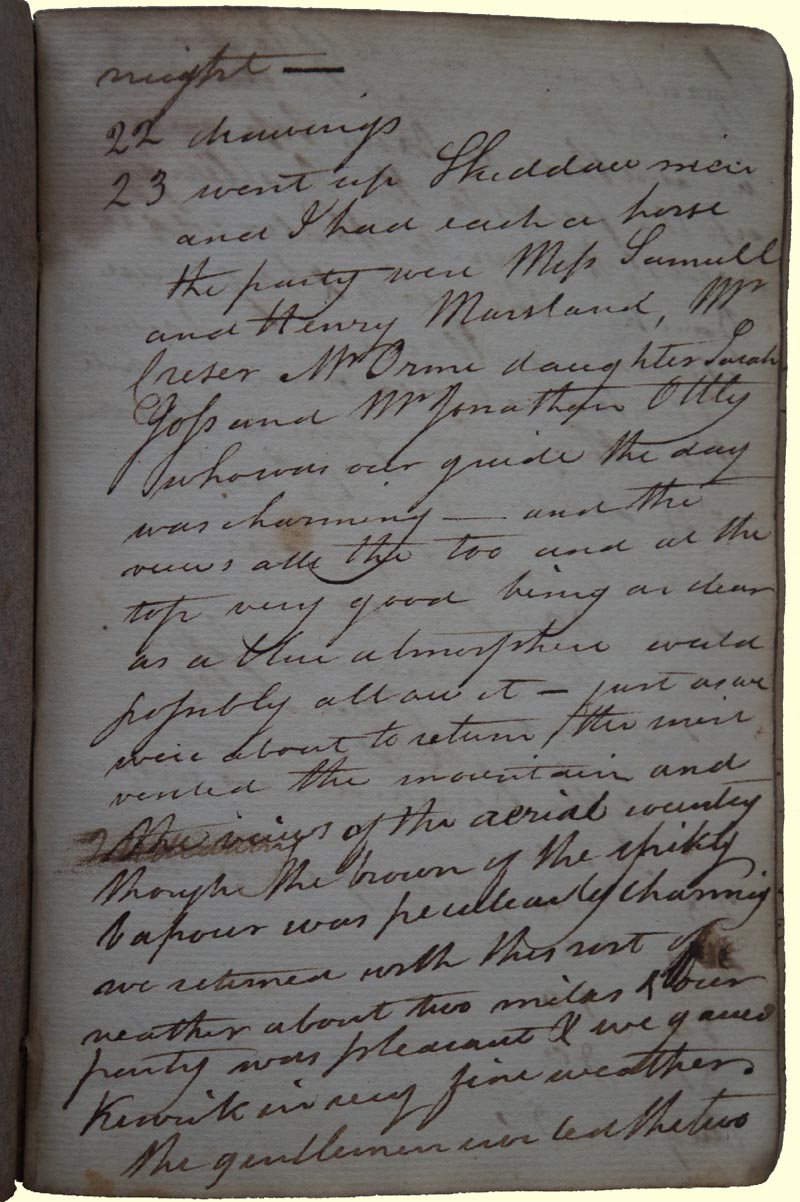 night —
22 drawings
23 went up Skiddaw
and I had each a horse
the party were Mess Samuell
and Henry Marsland, Mr
Creser Mr Orme daughter Sarah
Goss and Mr Jonathan Ottly
who was our guide the day
was charming — and the
views all the too and at the
top very good being as clear
as a blue atmosphere would
possibly allow it – just as we
were about to return the mist
vested the mountain and
the views of the aerial country
though the brown of the
vapour was peculearly charming
we returned with this sort of
weather about two miles & our
party was pleasant & we gained
Keswick in very fine weather.
the gentlemen the two